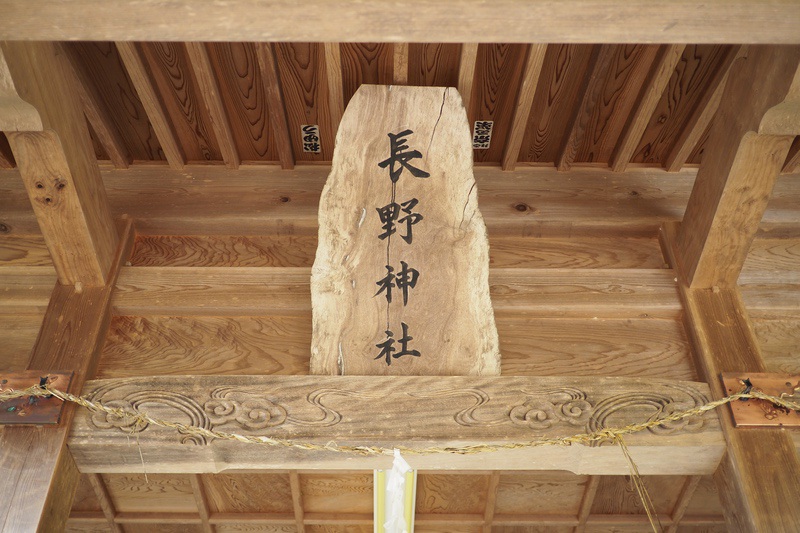 長野神社